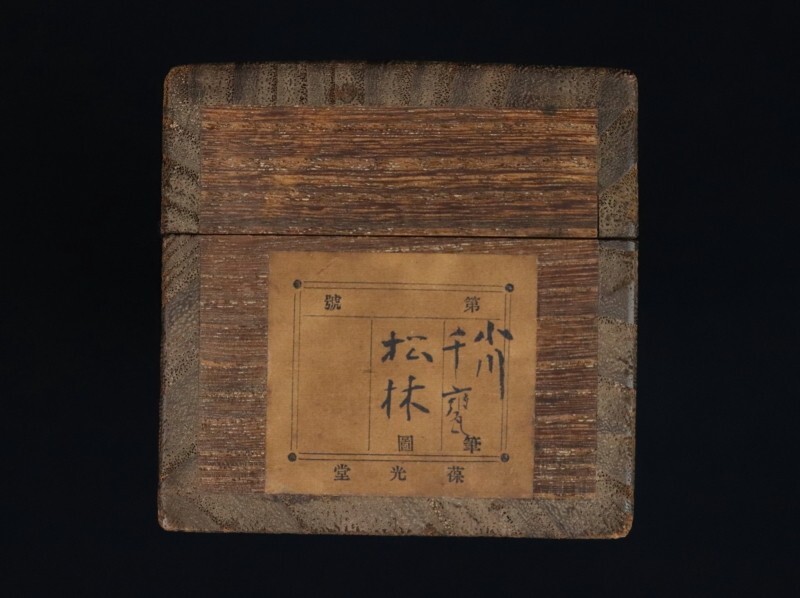 第 號
小川千甕筆
松林圖
葆光堂